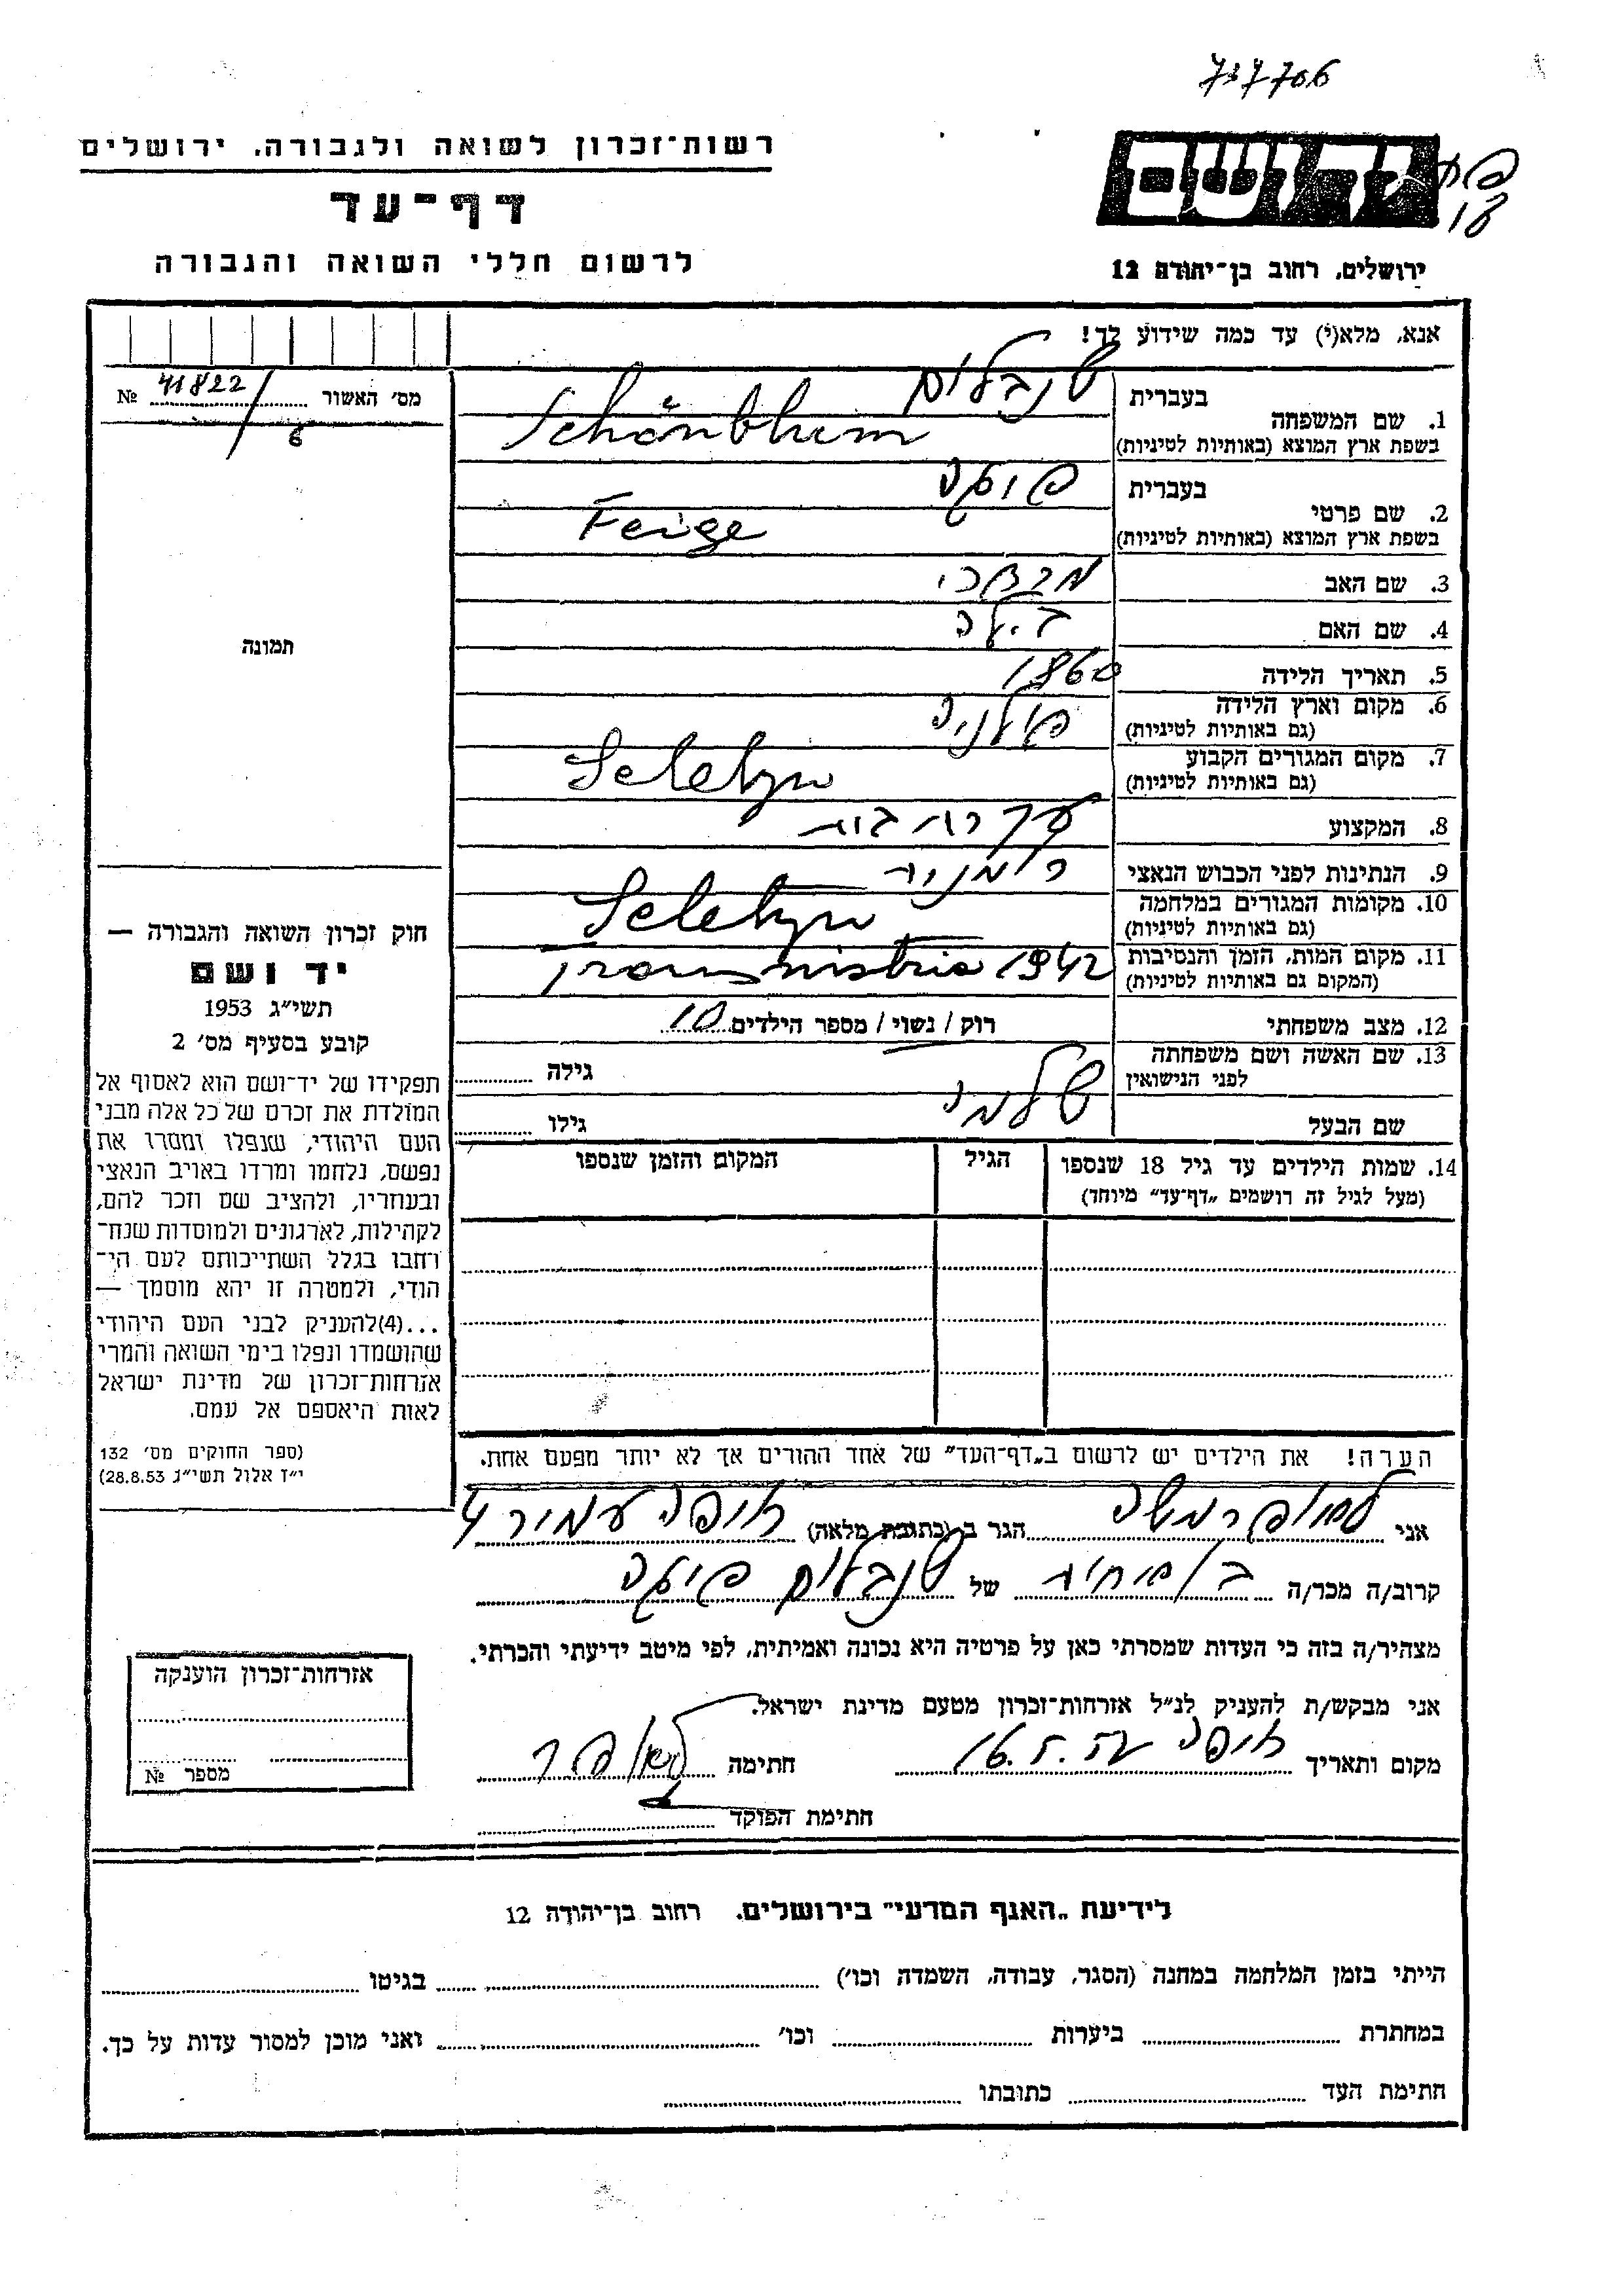 717706
רשות־זכרון לשואה ולגבורה. ירושלים
דף־עד
לרשום חללי השואה והגבורה
יד ושם
ירושלים, רחוב בן־יהודה 12
אנא, מלא(י) עד כמה שידוע לך!
מס׳ האשור № 41822
6
1. שם המשפחה
בעברית שנבלום
בשפת ארץ המוצא (באותיות לטיניות) Schönblum
2. שם פרטי
בעברית פיגה
בשפת ארץ המוצא (באותיות לטיניות) Feige
3. שם האב מרדכי
4. שם האם
5. תאריך הלידה 1860
6. מקום וארץ הלידה
(גם באותיות לטיניות)
7. מקום המגורים הקבוע Seletyn
(גם באותיות לטיניות)
8. המקצוע עקרת בית
9. הנתינות לפני הכבוש הנאצי
10. מקומות המגורים במלחמה Seletyn
(גם באותיות לטיניות)
11. מקום המות, הזמן והנסיבות Transnistria 1942
(המקום גם באותיות לטיניות)
12. מצב משפחתי רוק / נשוי / מספר הילדים 10
13. שם האשה ושם משפחתה גילה
לפני הנישואין
שם הבעל שלמה גילו
14. שמות הילדים עד גיל 18 שנספו הגיל המקום והזמן שנספו
(מעל לגיל זה רושמים „דף־עד״ מיוחד)
הערה! את הילדים יש לרשום ב„דף־העד״ של אחד ההורים אך לא יותר מפעם אחת.
תמונה
חוק זכרון השואה והגבורה —
יד ושם
תשי״ג 1953
קובע בסעיף מס׳ 2
תפקידו של יד־ושם הוא לאסוף אל
המולדת את זכרם של כל אלה מבני
העם היהודי, שנפלו ומסרו את
נפשם, נלחמו ומרדו באויב הנאצי
ובעוזריו, ולהציב שם וזכר להם,
לקהילות, לארגונים ולמוסדות שנח־
רחבו בגלל השתייכותם לעם הי־
הודי, ולמטרה זו יהא מוסמך —
...(4)להעניק לבני העם היהודי
שהושמדו ונפלו בימי השואה והמרי
אזרחות־זכרון של מדינת ישראל
לאות היאספם אל עמם.
(ספר החוקים מס׳ 132
י״ז אלול תשי״ג 28.8.53)
אני הגר ב (כתובת מלאה) חיפה עמיר 4
קרוב/ה מכר/ה של שנבלום פיגה
מצהיר/ה בזה כי העדות שמסרתי כאן על פרטיה היא נכונה ואמיתית, לפי מיטב ידיעתי והכרתי.
אני מבקש/ת להעניק לנ״ל אזרחות־זכרון מטעם מדינת ישראל.
מקום ותאריך חיפה 16.5. חתימה
חתימת הפוקד
אזרחות־זכרון הוענקה
מספר №
לידיעת „האגף המדעי״ בירושלים. רחוב בן־יהודה 12
הייתי בזמן המלחמה במחנה (הסגר, עבודה, השמדה וכו׳) בגיטו
במחתרת ביערות וכו׳ ואני מוכן למסור עדות על כך.
חתימת העד כתובתו